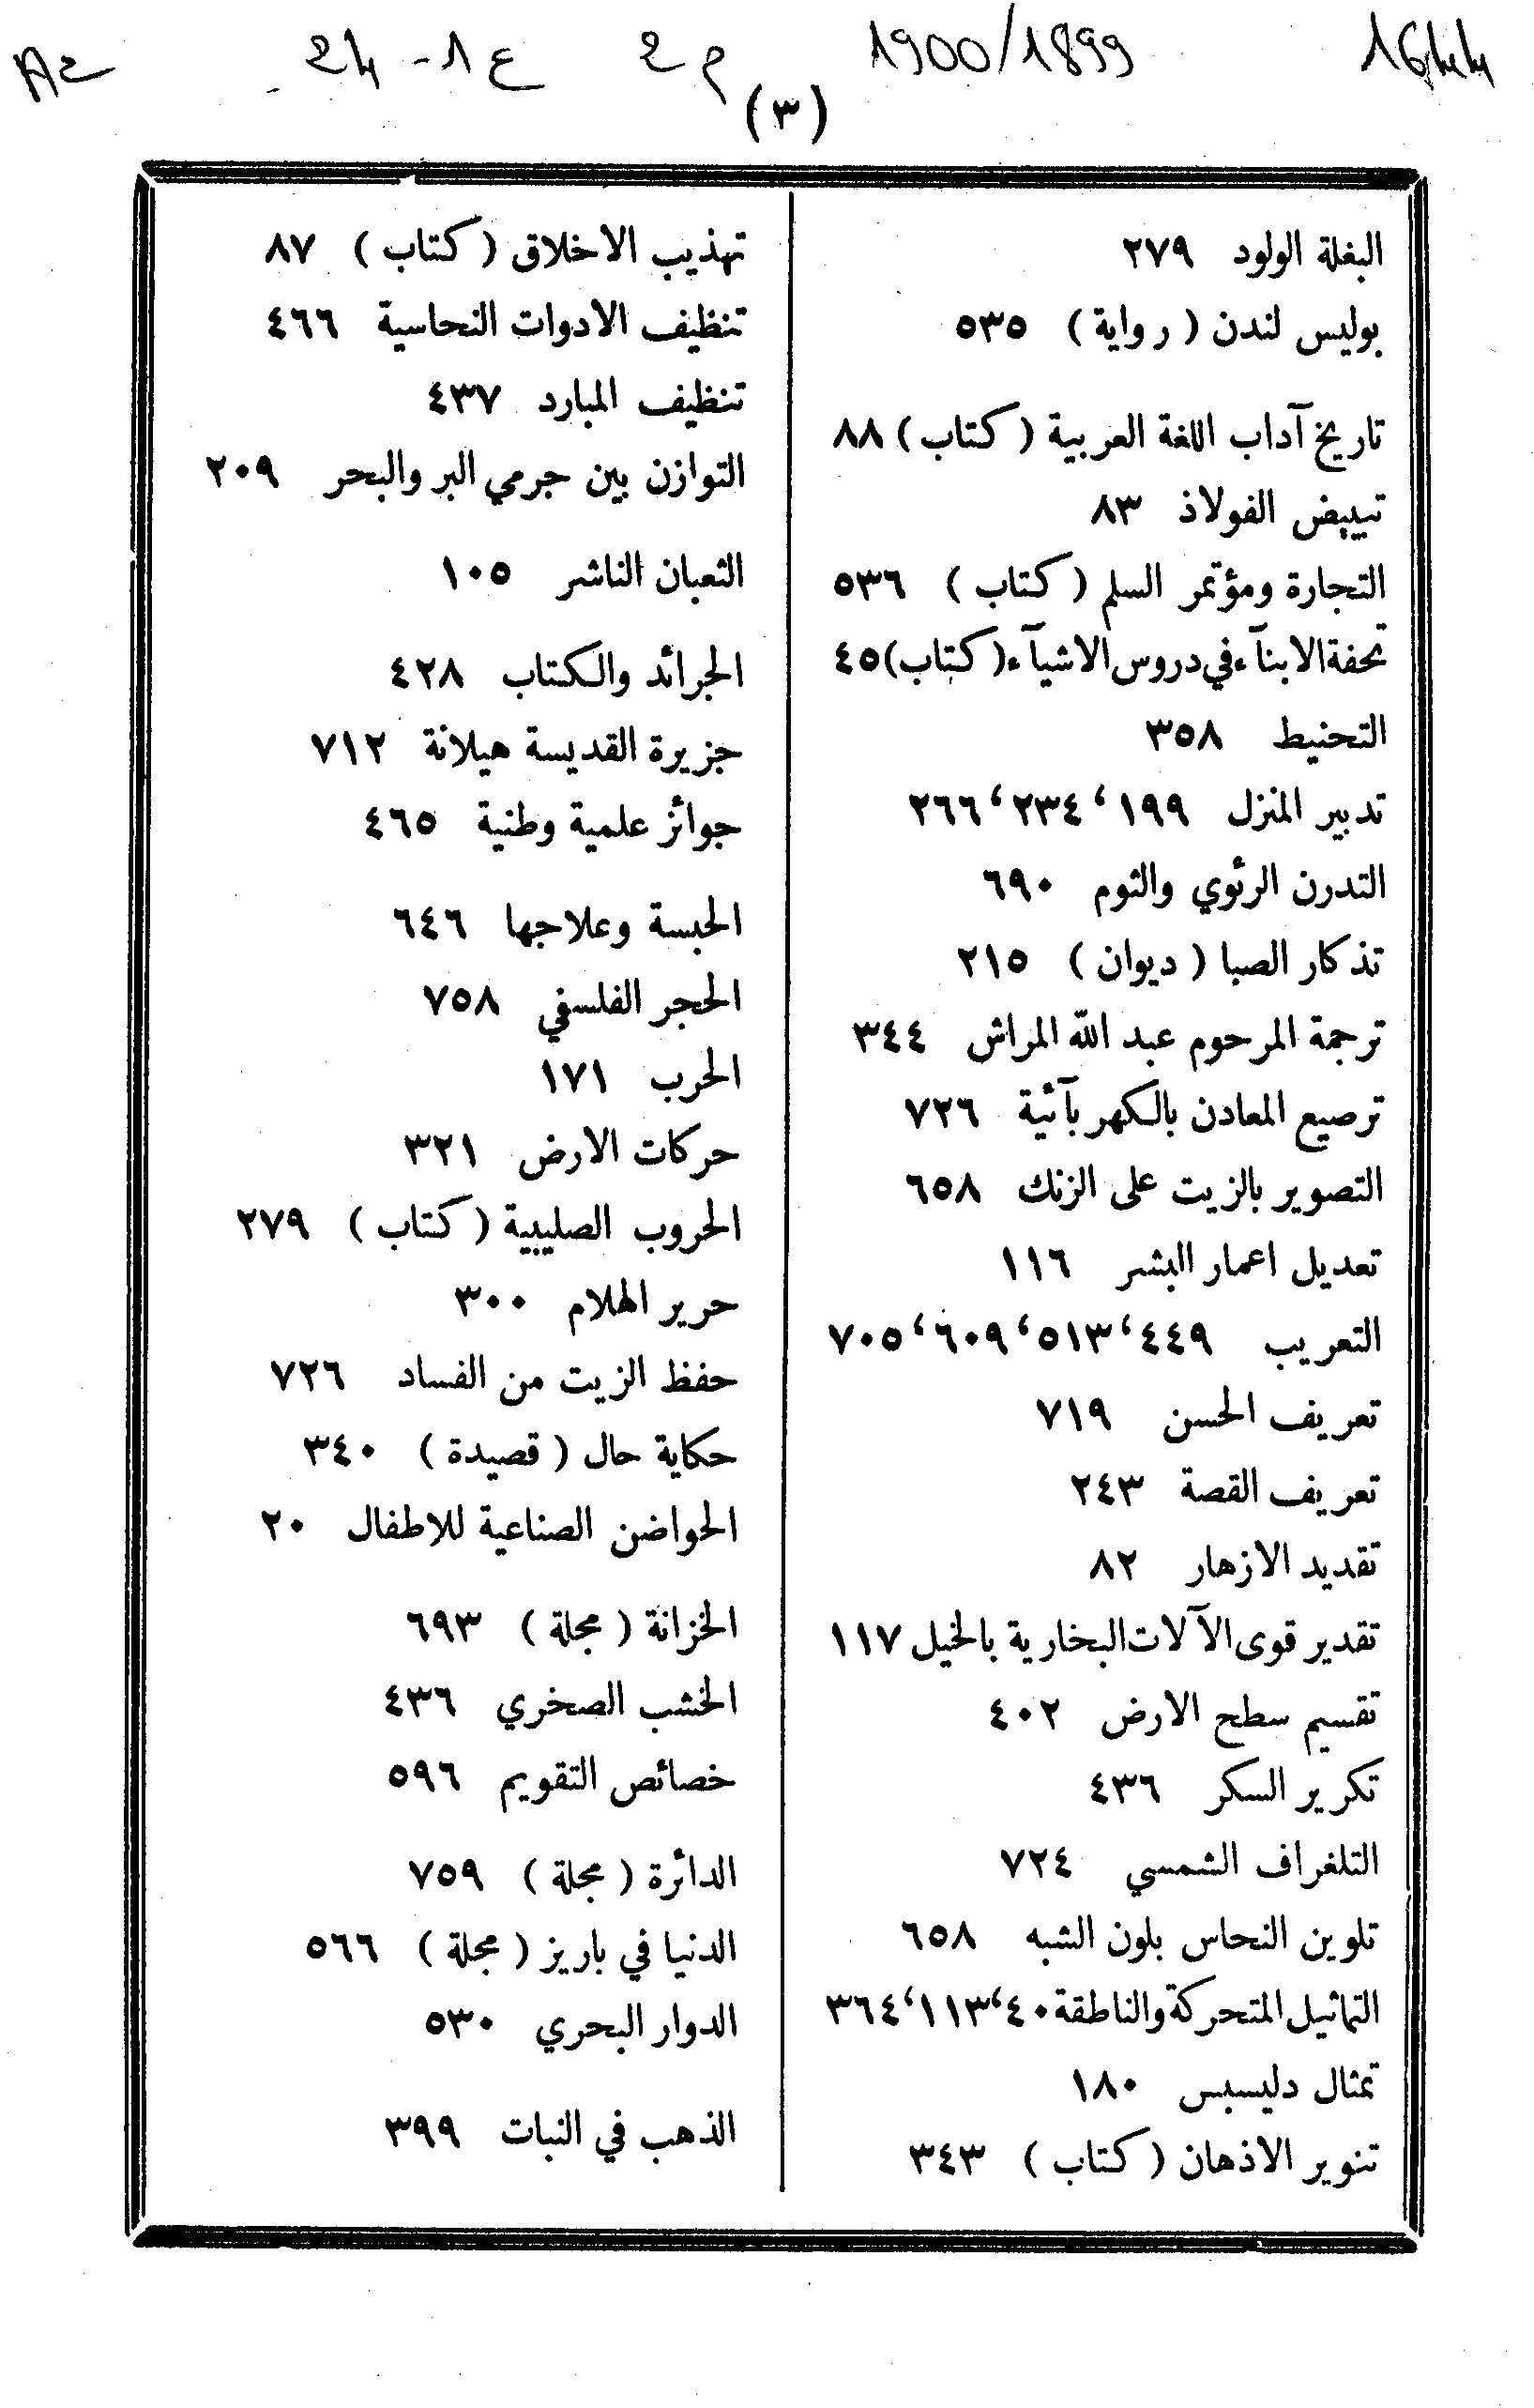 1644 1899/1900 م2 ع1-24 A2
(٣)
البغلة الولود ٢٧٩
بوليس لندن (رواية) ٥٣٥
تاريخ آداب اللغة العربية (كتاب) ٨٨
تبييض الفولاذ ٨٣
التجارة ومؤتمر السلم (كتاب) ٥٣٦
تحفة الابنآء في دروس الاشيآء (كتاب) ٤٥
التحنيط ٣٥٨
تدبير المنزل ١٩٩، ٢٣٤، ٢٦٦
التدرن الرئوي والثوم ٦٩٠
تذكار الصبا (ديوان) ٢١٥
ترجمة المرحوم عبد الله المراش ٣٤٤
ترصيع المعادن بالكهربآئية ٧٢٦
التصوير بالزيت على الزنك ٦٥٨
تعديل اعمار البشر ١١٦
التعريب ٤٤٩، ٥١٣، ٦٠٩، ٧٠٥
تعريف الحسن ٧١٩
تعريف القصة ٢٤٣
تقديد الازهار ٨٢
تقدير قوى الآلات البخارية بالخيل ١١٧
تقسيم سطح الارض ٤٠٢
تكرير السكر ٤٣٦
التلغراف الشمسي ٧٢٤
تلوين النحاس بلون الشبه ٦٥٨
التماثيل المتحركة والناطقة ٤٠، ١١٣، ٣٦٤
تمثال دليسبس ١٨٠
تنوير الاذهان (كتاب) ٣٤٣
تهذيب الاخلاق (كتاب) ٨٧
تنظيف الادوات النحاسية ٤٦٦
تنظيف المبارد ٤٣٧
التوازن بين جرمي البر والبحر ٢٠٩
الثعبان الناشر ١٠٥
الجرائد والكتاب ٤٢٨
جزيرة القديسة هيلانة ٧١٢
جوائز علمية وطنية ٤٦٥
الحبسة وعلاجها ٦٤٦
الحجر الفلسفي ٧٥٨
الحرب ١٧١
حركات الارض ٣٢١
الحروب الصليبية (كتاب) ٢٧٩
حرير الهلام ٣٠٠
حفظ الزيت من الفساد ٧٢٦
حكاية حال (قصيدة) ٣٤٠
الحواضن الصناعية للاطفال ٢٠
الخزانة (مجلة) ٦٩٣
الخشب الصخري ٤٣٦
خصائص التقويم ٥٩٦
الدائرة (مجلة) ٧٥٩
الدنيا في باريز (مجلة) ٥٦٦
الدوار البحري ٥٣٠
الذهب في النبات ٣٩٩